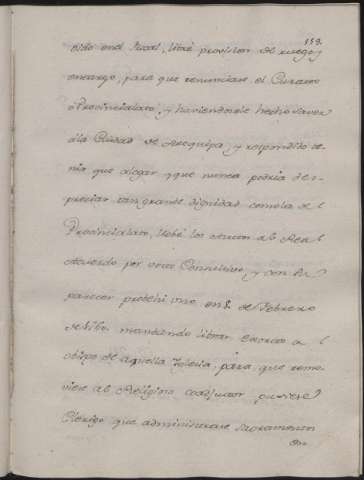 159.
sido en el Rl. libré provision de ruego y
encargo, para que renunciase el Curato
o Provincialato, y haviendosele hecho saver
à la Ciudad de Arequipa, y respondido te-
nia que alegar, y que nunca podria des-
preciar tan grande dignidad como la de
Provincialato, llebé los autos al Real
Acuerdo por voto Consultivo, y con su
parecer probehi uno en 8. de Febrero
mandando librar exorto al
obispo de aquella Iglesia, para que remo-
viere al Religioso coadjutor, pusiese
Clerigo que administrase Sacramentos